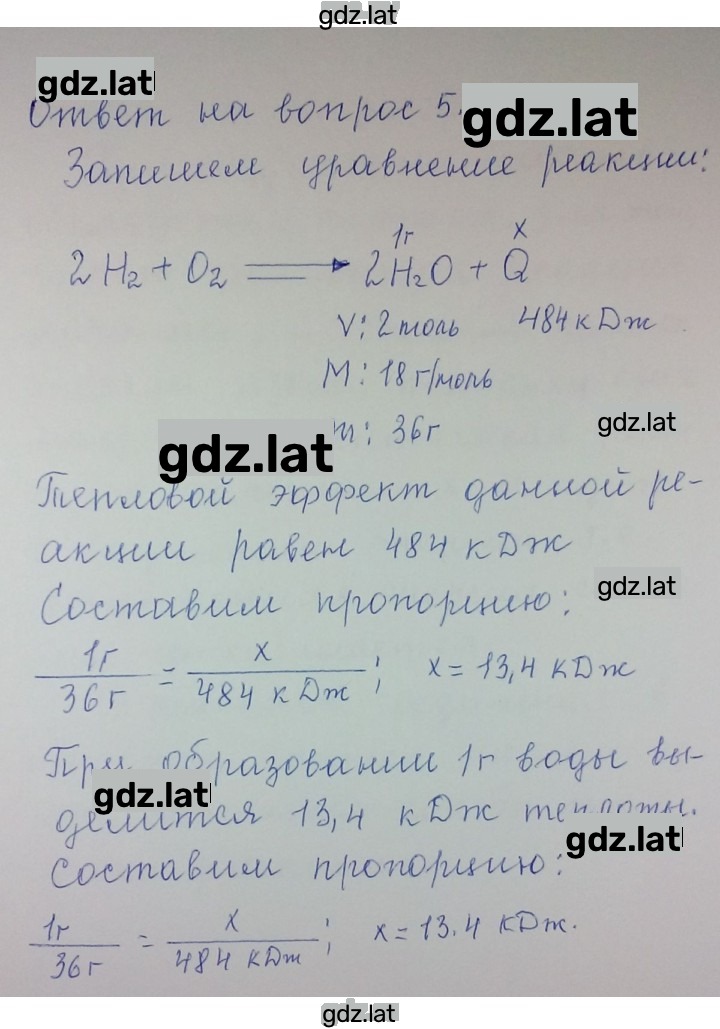 gdz.lat
gdz.lat
Ответ на вопрос 5.
gdz.lat
Запишем уравнение реакции:
1г x
2H₂ + O₂ ⟶ 2H₂O + Q
V: 2 моль 484 кДж
M: 18 г/моль
m: 36г
gdz.lat
gdz.lat
Тепловой эффект данной ре-
акции равен 484 кДж
gdz.lat
Составим пропорцию:
1г/36г = x/484 кДж; x = 13,4 кДж
При образовании 1г воды вы-
gdz.lat
делится 13,4 кДж теплоты.
gdz.lat
Составим пропорцию:
1г/36г = x/484 кДж; x = 13.4 кДж.
gdz.lat